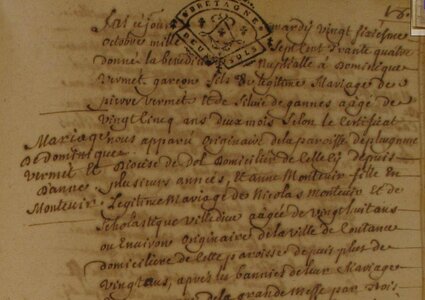 BRETAGNE
DEUX SOLS
Lan ce jour mardy vingt sixiesme
octobre mille Sept cent trante quatre
donné la benedic nuptialle a Dominique
Vermet garçon fils de legitime Mariage de
pierre Vermet et de de gannes agée de
vingt cinq ans deux mois selon le Certificat
Mariage
De dominique
Vermet et
D'anne
Montevir
nous apparu Originaire de la paroisse de
Diocese de Dol Domicilier de Celle cy depuis
plusieurs années, et Anne Monteuir fille En
Legitime Mariage de Nicolas Monteuir et de
Scholastique Villedieu agée de vingt huit ans
ou Environ Originaire de la Ville de Coutance
domiciliere de Cette paroisse depuis plus de
vingt ans, apres les bannies de leur Mariage
de la grande Messe par trois